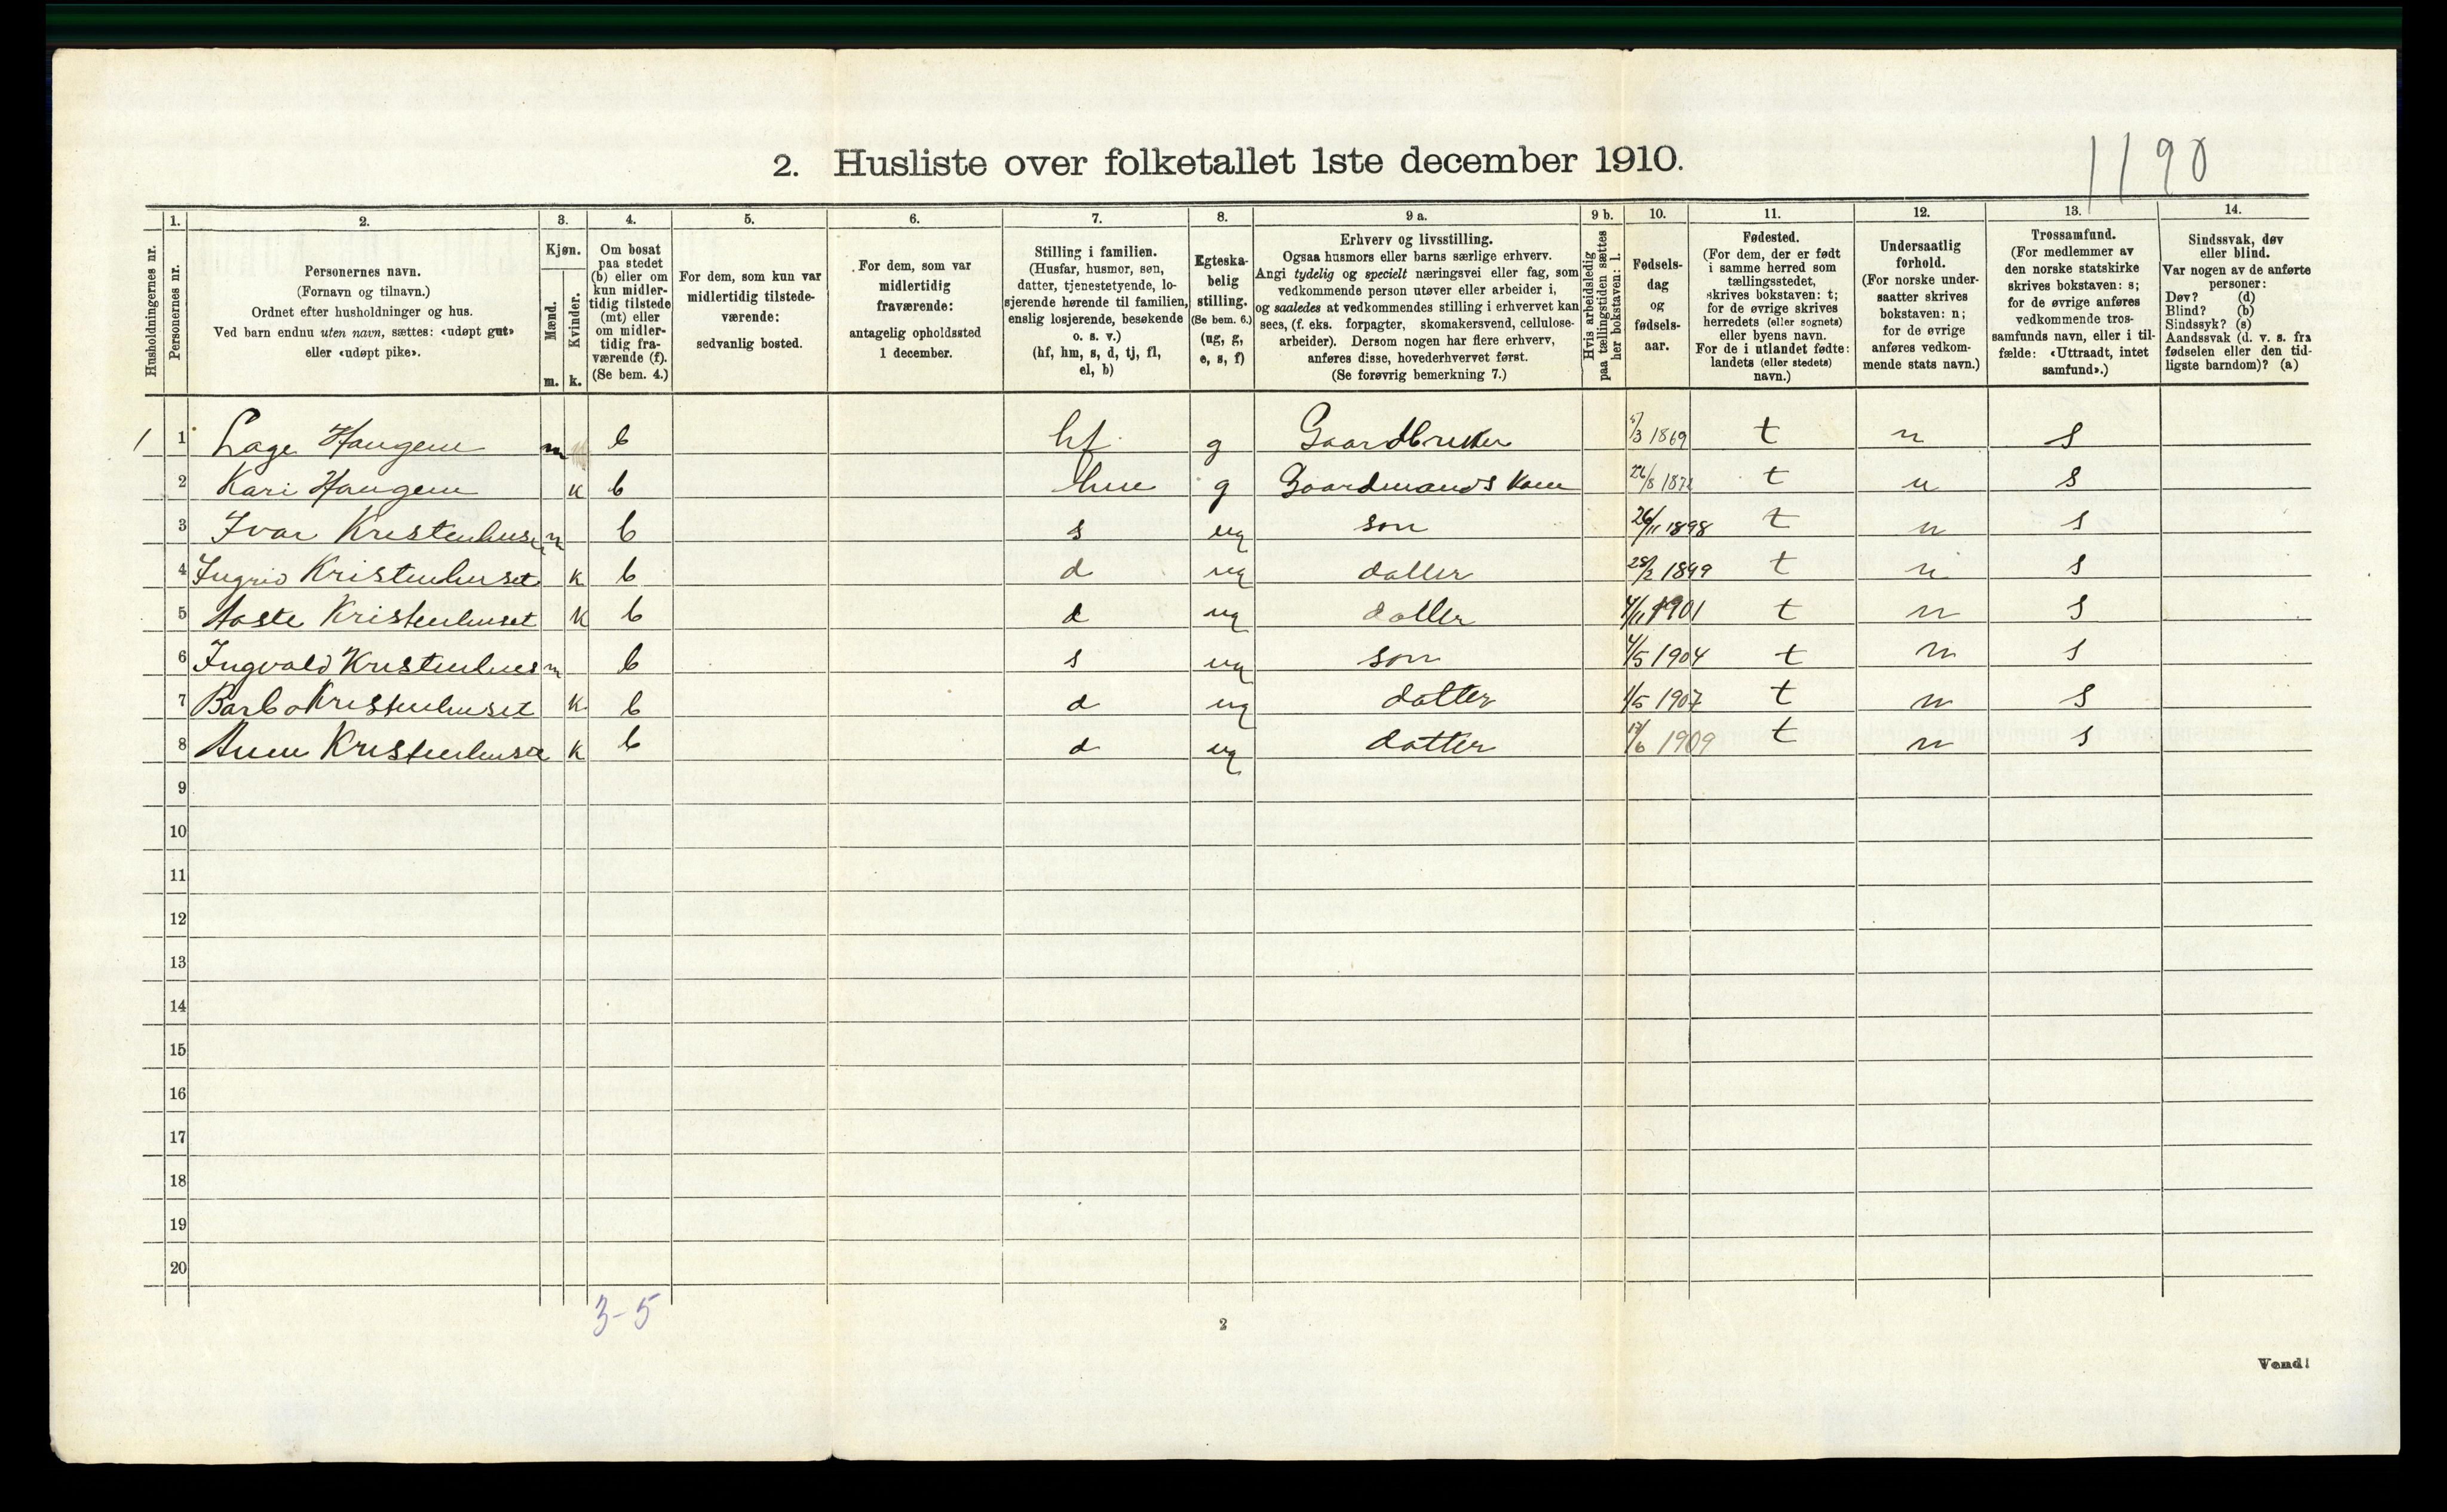 1190
2. Husliste over folketallet 1ste december 1910.
Husholdningernes nr.
1.
Personernes nr.
2.
Personernes navn.
(Fornavn og tilnavn.)
Ordnet efter husholdninger og hus.
Ved barn endnu uten navn, sættes: «udøpt gut»
eller «udøpt pike».
3.
Kjøn.
Mænd.
m.
Kvinder.
k.
4.
Om bosat
paa stedet
(b) eller om
kun midler-
tidig tilstede
(mt) eller
om midler-
tidig fra-
værende (f).
(Se bem. 4.)
5.
For dem, som kun var
midlertidig tilstede-
værende:
sedvanlig bosted.
6.
For dem, som var
midlertidig
fraværende:
antagelig opholdssted
1 december.
7.
Stilling i familien.
(Husfar, husmor, søn,
datter, tjenestetyende, lo-
sjerende hørende til familien,
enslig losjerende, besøkende
o. s. v.)
(hf, hm, s, d, tj, fl,
el, b)
8.
Egteska-
belig
stilling.
(Se bem. 6.)
(ug, g,
e, s, f)
9 a.
Erhverv og livsstilling.
Ogsaa husmors eller barns særlige erhverv.
Angi tydelig og specielt næringsvei eller fag, som
vedkommende person utøver eller arbeider i,
og saaledes at vedkommendes stilling i erhvervet kan
sees, (f. eks. forpagter, skomakersvend, cellulose-
arbeider). Dersom nogen har flere erhverv,
anføres disse, hovederhvervet først.
(Se forøvrig bemerkning 7.)
9 b.
Hvis arbeidsledig
paa tællingstiden sættes
her bokstaven: l.
10.
Fødsels-
dag
og
fødsels-
aar.
11.
Fødested.
(For dem, der er født
i samme herred som
tællingsstedet,
skrives bokstaven: t;
for de øvrige skrives
herredets (eller sognets)
eller byens navn.
For de i utlandet fødte:
landets (eller stedets)
navn.)
12.
Undersaatlig
forhold.
(For norske under-
saatter skrives
bokstaven: n;
for de øvrige
anføres vedkom-
mende stats navn.)
13.
Trossamfund.
(For medlemmer av
den norske statskirke
skrives bokstaven: s;
for de øvrige anføres
vedkommende tros-
samfunds navn, eller i til-
fælde: «Uttraadt, intet
samfund».)
14.
Sindssvak, døv
eller blind.
Var nogen av de anførte
personer:
Døv? (d)
Blind? (b)
Sindssyk? (s)
Aandssvak (d. v. s. fra
fødselen eller den tid-
ligste barndom)? (a)
1 1 Lage Haugen m b hf g Gaardbruker /3 1869 t n s
2 Kari Haugen k b hm g Gaardmands kone 26/8 t n s
3 Ivar m b s ug son 26/11 1898 t n s
4 Ingrid Kristenhuset k b d ug datter 1899 t n s
5 Aaste Kristenhuset k b d ug datter 4/11 1901 t n s
6 Ingvald m b s ug son 4/5 1904 t n s
7 Barbo Kristenhuset k b d ug datter 1/5 1907 t n s
8 k b d ug datter /6 1909 t n s
9
10
11
12
13
14
15
16
17
18
19
20
3-5
2
Vend!